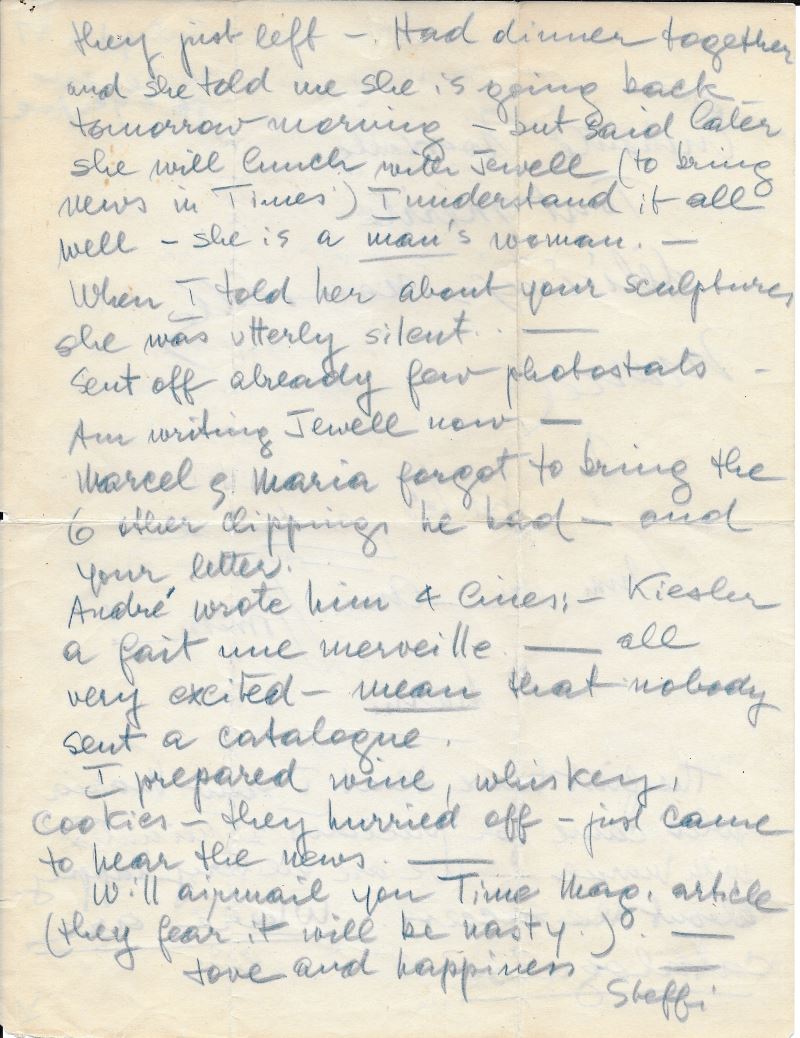 they just left —. Had dinner together
and she told me she is going back
tomorrow morning – but said later
she will lunch with Jewell (to bring
news in Times) I understand it all
well – she is a man's woman. —
When I told her about your sculptures
she was utterly silent.. —
Sent off already few photostats –
Am writing Jewell now —
Marcel & Maria forgot to bring the
6 other clippings he had – and
your letter.
André wrote him 4 lines: – Kiesler
a fait une merveille. — all
very excited – mean that nobody
sent a catalogue.
I prepared wine, whiskey,
cookies – they hurried off – just came
to hear the news. —
Will airmail you Time Mag. article
(they fear it will be nasty.). —
Love and happiness —
Steffi